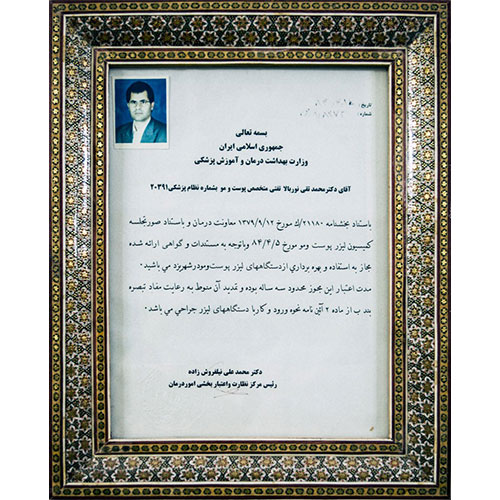 تاریخ:
شماره:
بسمه تعالی
جمهوری اسلامی ایران
وزارت بهداشت درمان و آموزش پزشکی
آقای دکتر محمد تقی نوربالا تفتی متخصص پوست و مو بشماره نظام پزشکی ۲۰۳۹۱
باستناد بخشنامه ۲۱۱۸۰/ك مورخ ۱۳۷۹/۹/۱۲ معاونت درمان و باستناد صورتجلسه
کمیسیون لیزر پوست ومو مورخ ۸۴/۴/۵ وباتوجه به مستندات و گواهی ارائه شده
مجاز به استفاده و بهره برداري ازدستگاههای لیزر پوست‌ومودرشهریزد مي باشید۰
مدت اعتبار این مجوز محدود سه ساله بوده و تمدید آن منوط به رعایت مفاد تبصره
بند ب از ماده ۲ آئین نامه نحوه ورود و کاربا دستگاههای لیزر جراحي مي باشد۰
دکتر محمد علی نیلفروش زاده
رئیس مرکز نظارت واعتبار بخشی اموردرمان